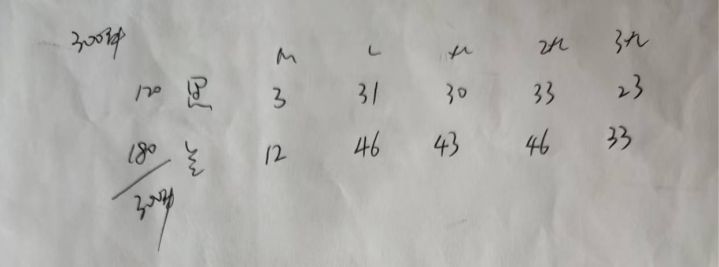 300
M L XL 2XL 3XL
120 黑 3 31 30 33 23
180 兰 12 46 43 46 33
300